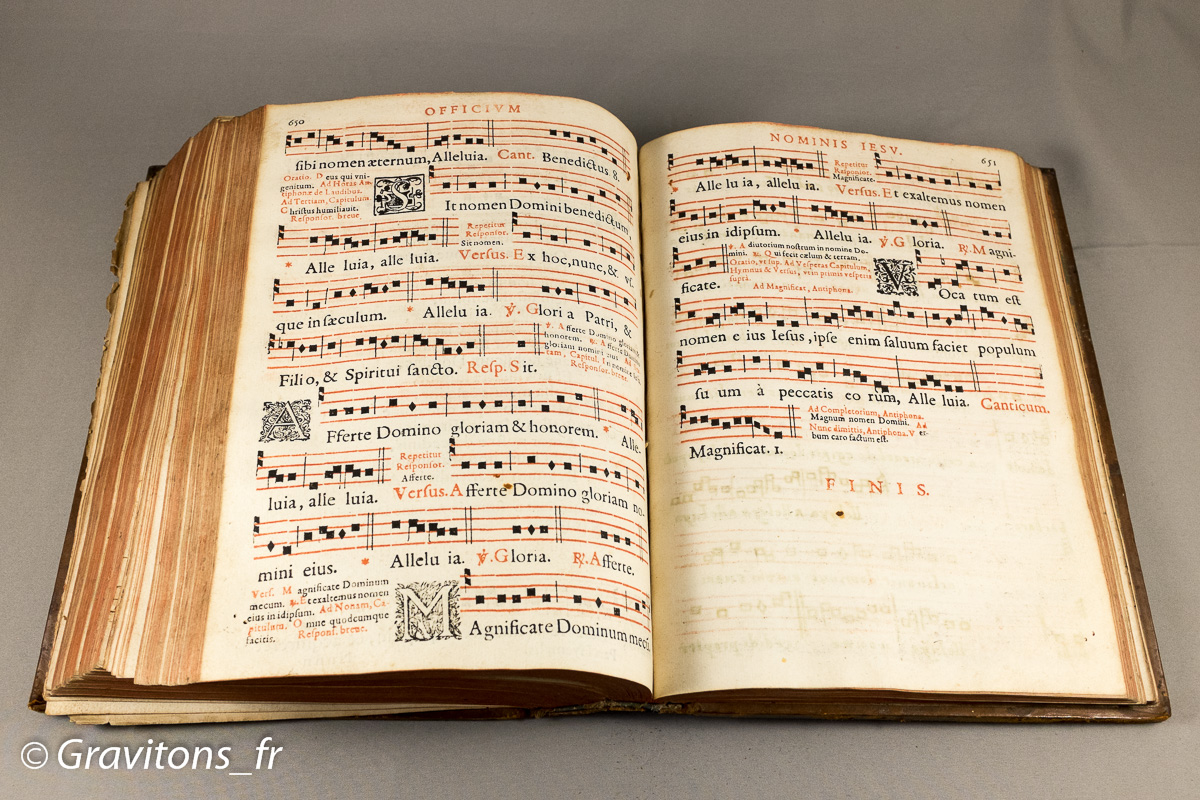 650
OFFICIVM
sibi nomen æternum, Alleluia. Cant. Benedictus 8.
Oratio. Deus qui vni-
genitum. Ad Horas An-
tiphonæ de Laudibus.
Ad Tertiam, Capitulum.
Christus humiliauit.
Responsor. breue.
SIt nomen Domini benedictum,
Alle luia, alle luia.
Repetitur
Responsor.
Sit nomen.
Versus. Ex hoc, nunc, & vs.
que in sæculum. * Allelu ia. ℣. Glori a Patri, &
Filio, & Spiritui sancto. Resp. Sit.
℣. Afferte Domino gloriam &
honorem. ℟. Afferte Domino
gloriam nomini eius
Responsor. breue.
AFferte Domino gloriam & honorem. * Alle-
luia, alle luia.
Repetitur
Responsor.
Afferte.
Versus. Afferte Domino gloriam no-
mini eius. * Allelu ia. ℣. Gloria. ℟. Afferte.
Vers. Magnificate Dominum
mecum. ℟. Et exaltemus nomen
eius in idipsum. Ad Nonam, Ca-
pitulum. Omne quodcumque
facitis. Respons. breue.
MAgnificate Dominum mecũ.
NOMINIS IESV.
651
* Alle lu ia, allelu ia.
Repetitur
Responsor.
Magnificate.
Versus. Et exaltemus nomen
eius in idipsum. * Allelu ia. ℣. Gloria. ℟. Magni-
ficate.
℣. Adiutorium nostrum in nomine Do-
mini. ℟. Qui fecit cælum & terram.
Oratio, vt sup. Ad Vesperas Capitulum,
Hymnus & Versus, vt in primis vesperis
supra.
Ad Magnificat, Antiphona.
VOca tum est
nomen e ius Iesus, ipse enim saluum faciet populum
su um à peccatis eo rum, Alle luia. Canticum.
Magnificat. 1.
Ad Completorium, Antiphona.
Magnum nomen Domini. Ad
Nunc dimittis, Antiphona. Ver-
bum caro factum est.
FINIS.
© Gravitons_fr